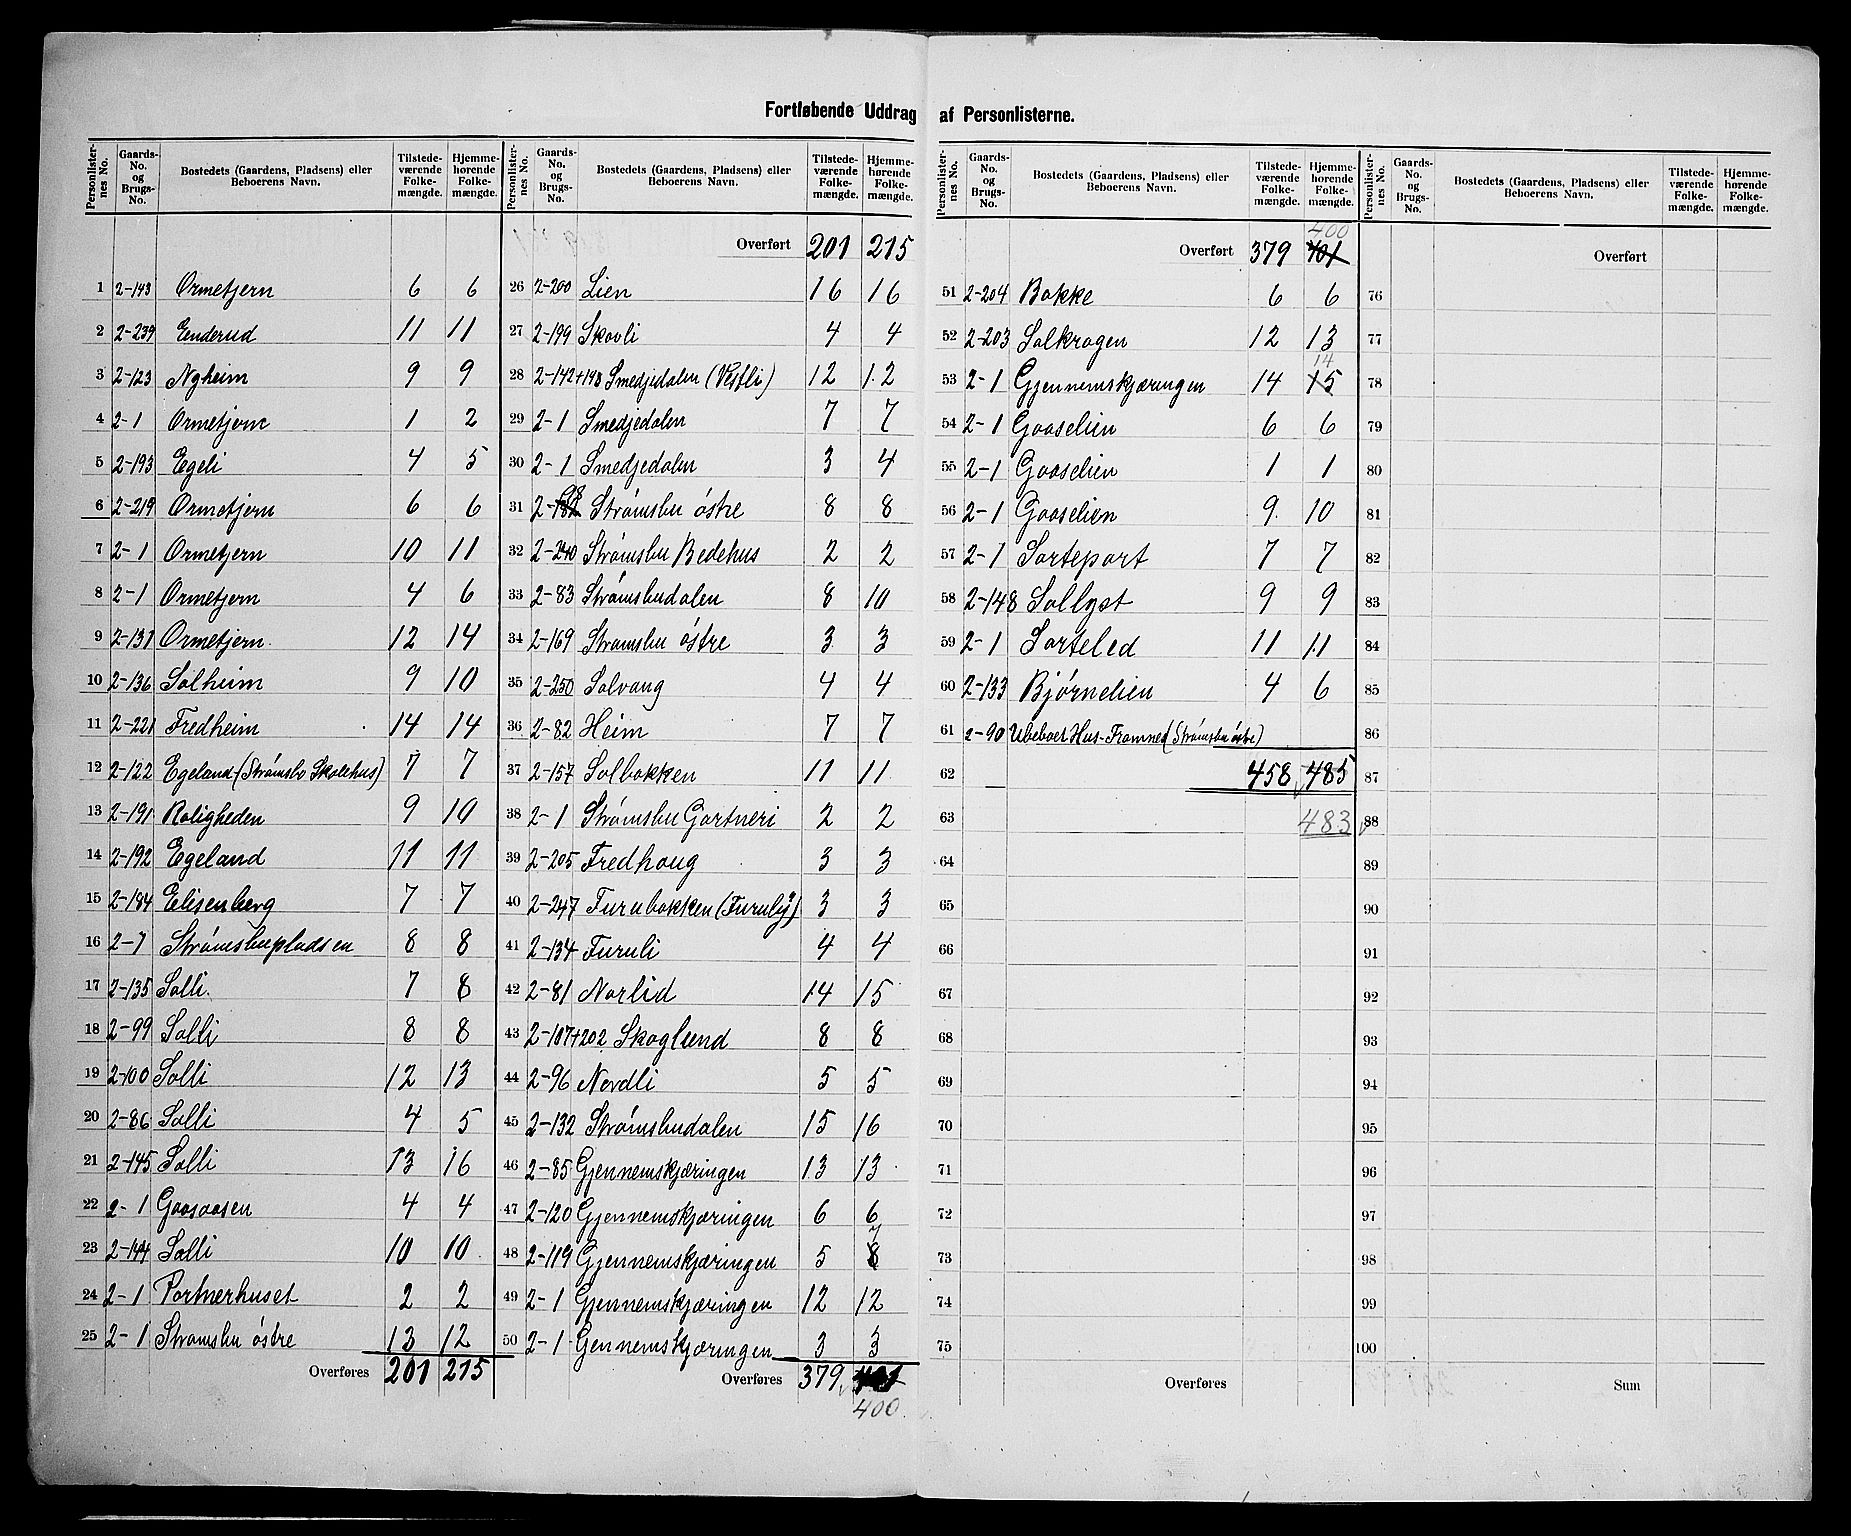 Fortløbende Uddrag af Personlisterne.
Personlisternes No. Gaards-No. og Brugs-No. Bostedets (Gaardens, Pladsens) eller Beboerens Navn. Tilstedeværende Folkemængde. Hjemmehørende Folkemængde.
1 2-143 Ormetjern 6 6
2 2-239 Enderud 11 11
3 2-123 Nyheim 9 9
4 2-1 Ormetjern 1 2
5 2-193 Egeli 4 5
6 2-219 Ormetjern 6 6
7 2-1 Ormetjern 10 11
8 2-1 Ormetjern 4 6
9 2-131 Ormetjern. 12 14
10 2-136 Solheim 9 10
11 2-221 Fredheim 14 14
12 2-122 Egeland (Strømsbo Skolehus) 7 7
13 2-191 Roligheden 9 10
14 2-192 Egeland 11 11
15 2-184 Elisenberg 7 7
16 2-1 Strømsbupladsen 8 8
17 2-135 Solli. 7 8
18 2-99 Solli 8 8
19 2-100 Solli 12 13
20 2-86 Solli 4 5
21 2-145 Solli 13 16
22 2-1 Gaasaasen 4 4
23 2-144 Solli 10 10
24 2-1 Portnerhuset 2 2
25 2-1 Strømsbu østre 13 12
Overføres 201 215
Personlisternes No. Gaards-No. og Brugs-No. Bostedets (Gaardens, Pladsens) eller Beboerens Navn. Tilstedeværende Folkemængde. Hjemmehørende Folkemængde.
Overført 201 215
26 2-200 Lien 16 16
27 2-199 Skovli 4 4
28 2-142+198 Smedjedalen (Vestli) 12 12
29 2-1 Smedjedalen 7 7
30 2-1 Smedjedalen 3 4
31 2- Strømsbu østre 8 8
32 2-240 Strømsbu Bedehus 2 2
33 2-83 Strømsbudalen 8 10
34 2-169 Strømsbu østre 3 3
35 2-250 Solvang 4 4
36 2-82 Heim 7 7
37 2-157 Solbakken 11 11
38 2-1 Strømsbu Gartneri 2 2
39 2-205 Fredhoug 3 3
40 2-247 Furubakken (Furuly?) 3 3
41 2-134 Furuli 4 4
42 2-81 Norlid 14 15
43 2-107+202 Skoglund 8 8
44 2-96 Nordli 5 5
45 2-132 Strømsbudalen 15 16
46 2-85 Gjennemskjæringen 13 13
47 2-120 Gjennemskjæringen 6 6
48 2-119 Gjennemskjæringen 5 8 7
49 2-1 Gjennemskjæringen 12 12
50 2-1 Gennemskjæringen 3 3
Overføres 379 401
400
Personlisternes No. Gaards-No. og Brugs-No. Bostedets (Gaardens, Pladsens) eller Beboerens Navn. Tilstedeværende Folkemængde. Hjemmehørende Folkemængde.
400
Overført 379 401
51 2-204 Bakke 6 6
52 2-203 Solkrogen 12 13
14
53 2-1 Gjennemskjæringen 14 15
54 2-1 Gaaselien 6 6
55 2-1 Gaaselien 1 1
56 2-1 Gaaselien 9 10
57 2-1 Sorteport 7 7
58 2-148 Sollyst 9 9
59 2-1 Sorteled 11 11
60 2-133 Bjørnelien 4 6
61 2-90 Ubeboet Hus-Framnes (Strømsbu østre)
62 458 485
63 483
64
65
66
67
68
69
70
71
72
73
74
75
Overføres
Personlisternes No. Gaards-No. og Brugs-No. Bostedets (Gaardens, Pladsens) eller Beboerens Navn. Tilstedeværende Folkemængde. Hjemmehørende Folkemængde.
Overført
76
77
78
79
80
81
82
83
84
85
86
87
88
89
90
91
92
93
94
95
96
97
98
99
100
Sum